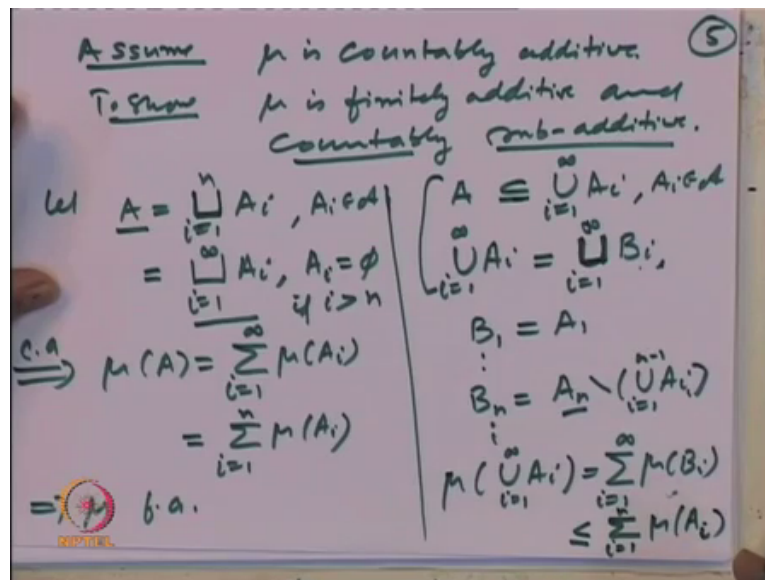 ⑤
Assume μ is countably additive.
To show μ is finitely additive and
countably sub-additive.
Let A = ⊔_{i=1}^{n} A_i , A_i ∈ 𝒜
= ⊔_{i=1}^{∞} A_i, A_i = ∅
if i > n
c.a
⟹ μ(A) = ∑_{i=1}^{∞} μ(A_i)
= ∑_{i=1}^{n} μ(A_i)
⟹ μ f.a.
A ⊆ ⋃_{i=1}^{∞} A_i, A_i ∈ 𝒜
⋃_{i=1}^{∞} A_i = ⊔_{i=1}^{∞} B_i,
B_1 = A_1
⋮
B_n = A_n \ (⋃_{i=1}^{n-1} A_i)
⋮
μ(⋃_{i=1}^{∞} A_i) = ∑_{i=1}^{∞} μ(B_i)
≤ ∑_{i=1} μ(A_i)
NPTEL